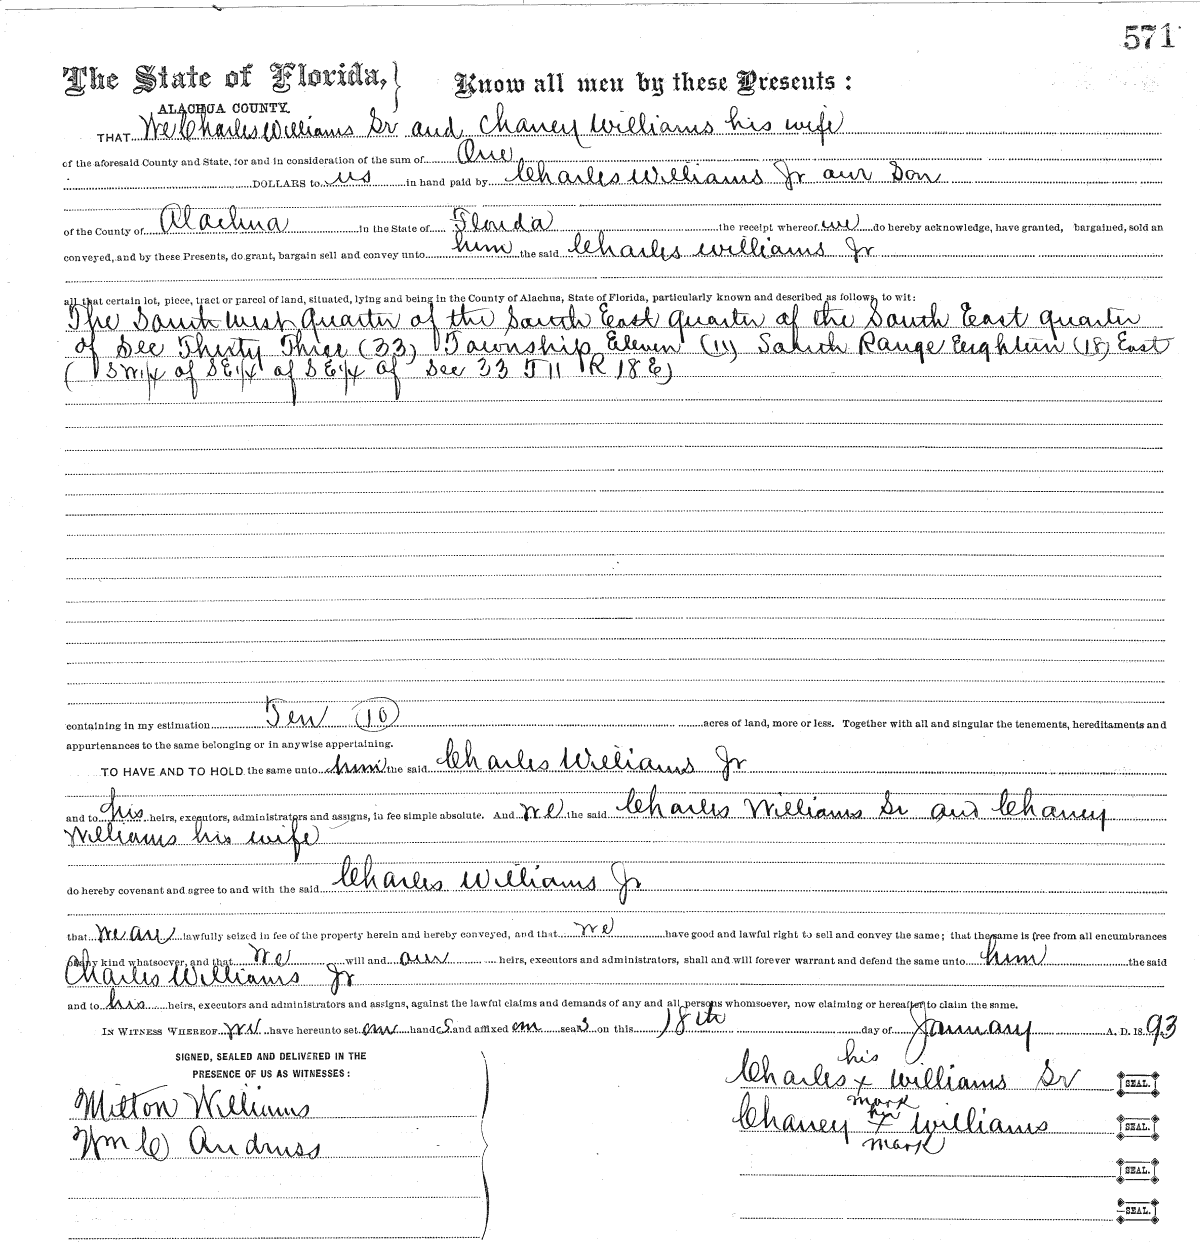 571
The State of Florida, Know all men by these Presents :
ALACHUA COUNTY.
THAT We Charles Williams Sr and Chaney Williams his wife
of the aforesaid County and State, for and in consideration of the sum of One
DOLLARS to us in hand paid by Charles Williams Jr our Son
of the County of Alachua in the State of Florida the receipt whereof we do hereby acknowledge, have granted, bargained, sold an
conveyed, and by these Presents, do grant, bargain sell and convey unto him the said Charles Williams Jr
all that certain lot, piece, tract or parcel of land, situated, lying and being in the County of Alachua, State of Florida, particularly known and described as follows, to wit:
The South West Quarter of the South East quarter of the South East quarter
of Sec Thirty Three (33) Township Eleven (11) South Range Eighteen (18) East
( SW1/4 of SE1/4 of SE1/4 of Sec 33 T 11 R 18 E)
containing in my estimation Ten (10) acres of land, more or less. Together with all and singular the tenements, hereditaments and
appurtenances to the same belonging or in anywise appertaining.
TO HAVE AND TO HOLD the same unto him the said Charles Williams Jr
and to his heirs, executors, administrators and assigns, in fee simple absolute. And we the said Charles Williams Sr and Chaney
Williams his wife
do hereby covenant and agree to and with the said Charles Williams Jr
that we are lawfully seized in fee of the property herein and hereby conveyed, and that we have good and lawful right to sell and convey the same; that the same is free from all encumbrances
of any kind whatsoever, and that we will and our heirs, executors and administrators, shall and will forever warrant and defend the same unto him the said
Charles Williams Jr
and to his heirs, executors and administrators and assigns, against the lawful claims and demands of any and all persons whomsoever, now claiming or hereafter to claim the same.
IN WITNESS WHEREOF, we have hereunto set our hands and affixed our seals on this 18th day of January A. D. 1893
SIGNED, SEALED AND DELIVERED IN THE
PRESENCE OF US AS WITNESSES :
Milton Williams
Wm C Andruss
his
Charles x Williams Sr SEAL.
mark
her
Chaney x Williams SEAL.
mark
SEAL.
SEAL.